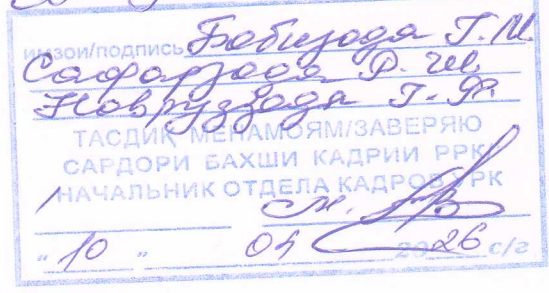 имзои/подпись Бобизода Г.М.
Сафарзода Р. Ш.
Новруззода Г. Ф.
ТАСДИҚ МЕНАМОЯМ/ЗАВЕРЯЮ
САРДОРИ БАХШИ КАДРИИ РРК
НАЧАЛЬНИК ОТДЕЛА КАДРОВ УРК
" 10 " 04 2026 с/г